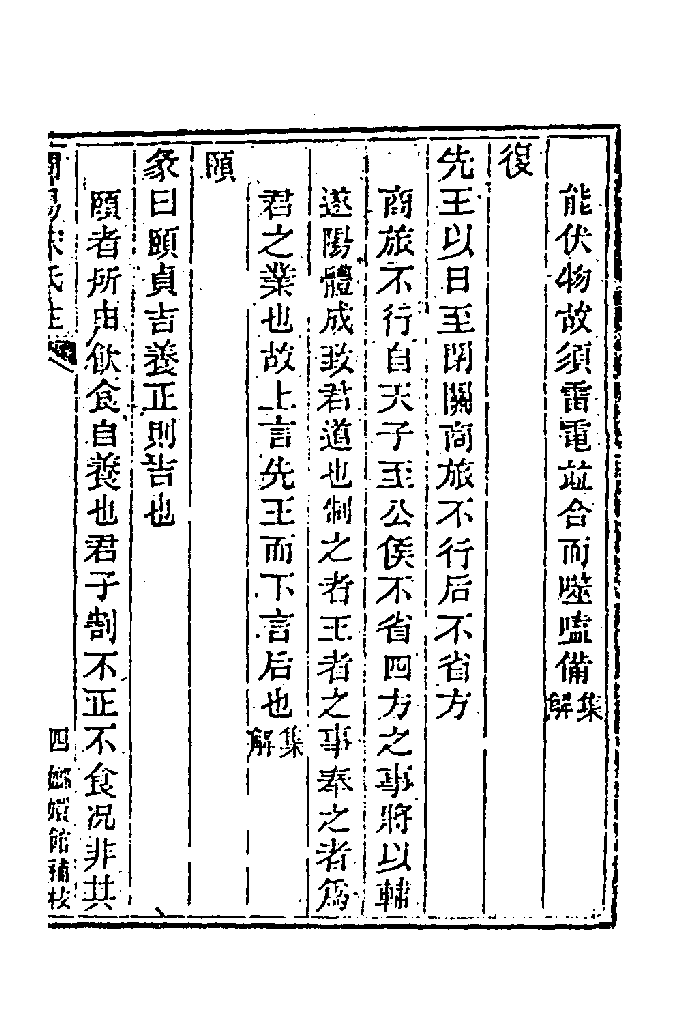 能伏物故須雷電竝合而噬嗑備集解
復
先王以日至閉關商旅不行后不省方
商旅不行自天子至公侯不省四方之事將以輔
遂陽體成致君道也制之者王者之事奉之者爲
君之業也故上言先王而下言后也集解
頤
彖曰頤貞吉養正則吉也
頤者所由飲食自養也君子割不正不食况非其
周易宋氏注
四
嫏嬛館補校